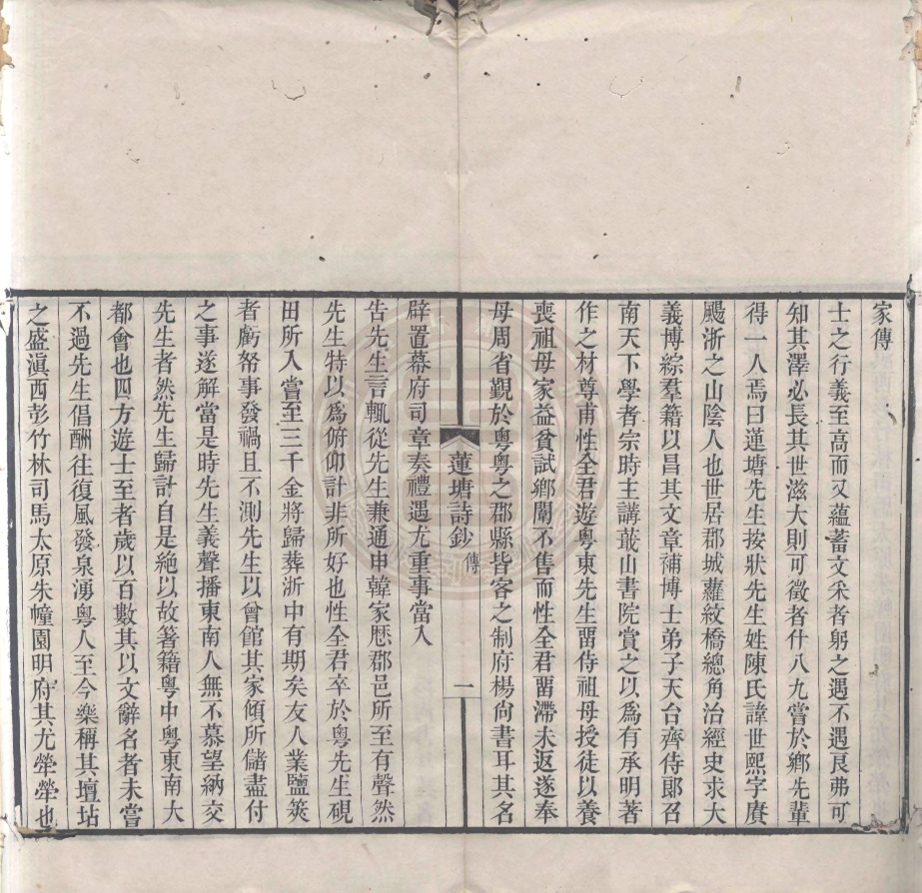 家傳
士之行義至高而又蘊蓄文采者躬之遇不遇艮弗可
知其澤必長其世滋大則可徵者什八九嘗於鄉先輩
得一人焉曰蓮塘先生按狀先生姓陳氏諱世熙字賡
颺浙之山陰人也世居郡城蘿紋橋總角治經史求大
義博綜羣籍以昌其文章補博士弟子天台齊侍郞召
南天下學者宗時主講蕺山書院賞之以爲有承明著
作之材尊甫性全君遊粵東先生畱侍祖母授徒以養
喪祖母家益貧試鄉闈不售而性全君畱滯未返遂奉
母周省覲於粵粵之郡縣皆客之制府楊尙書耳其名
蓮塘詩鈔 傳 一
辟置幕府司章奏禮遇尤重事當入
告先生言輒從先生兼通申韓家厯郡邑所至有聲然
先生特以爲俯仰計非所好也性全君卒於粵先生硯
田所入嘗至三千金將歸葬浙中有期矣友人業鹽筴
者虧帑事發禍且不測先生以曾館其家傾所儲盡付
之事遂解當是時先生義聲播東南人無不慕望納交
先生者然先生歸計自是絶以故著籍粵中粵東南大
都會也四方遊士至者歲以百數其以文辭名者未嘗
不過先生倡酬往復風發泉湧粵人至今樂稱其壇坫
之盛滇西彭竹林司馬太原朱幢園明府其尤犖犖也